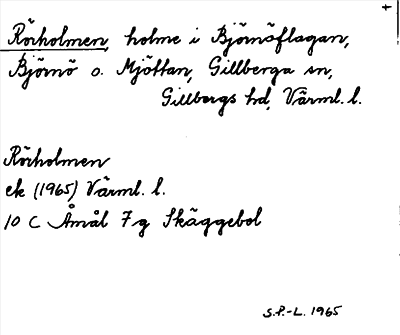 Rörholmen, holme i Björnöflagan,
Björnö o. Mjöttan, Gillberga sn,
Gillbergs hd, Värml. l.
Rörholmen
ek (1965) Värml. l.
10 C Åmål 7g Skäggebol
S.P.-L. 1965